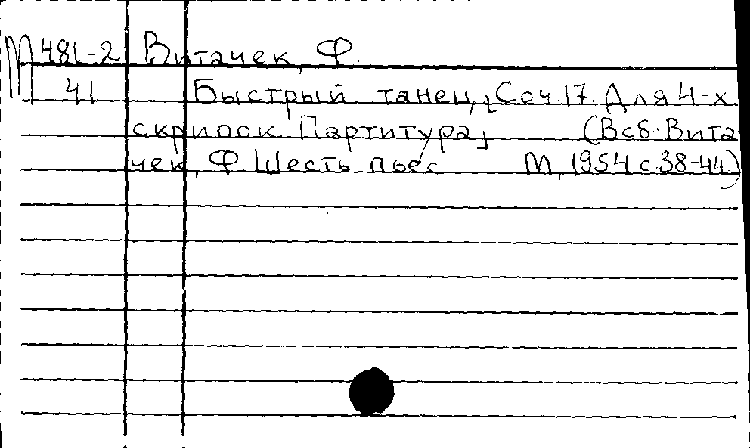 М 481-2 Витачек, Ф.
41 Быстрый танец, [Соч 17. Для 4-х
скрипок. Партитура] (В сб. Вита
чек, Ф. Шесть пьес М, 1954 с 38-44)